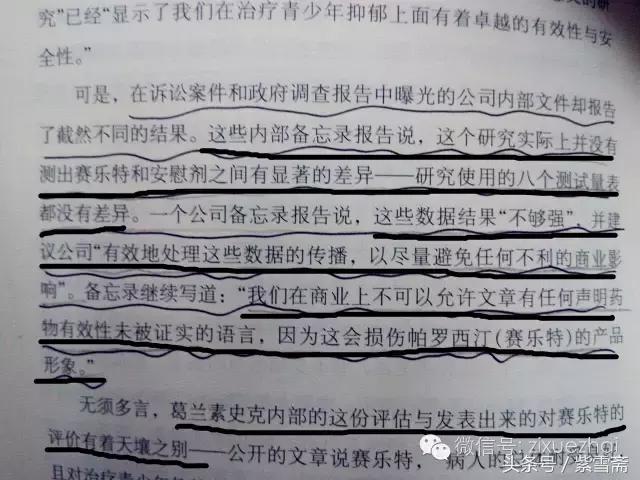 究”已经“显示了我们在治疗青少年抑郁上面有着卓越的有效性与安
全性。”
可是，在诉讼案件和政府调查报告中曝光的公司内部文件却报告
了截然不同的结果。这些内部备忘录报告说，这个研究实际上并没有
测出赛乐特和安慰剂之间有显著的差异——研究使用的八个测试量表
都没有差异。一个公司备忘录报告说，这些数据结果“不够强”，并建
议公司“有效地处理这些数据的传播，以尽量避免任何不利的商业影
响”。备忘录继续写道：“我们在商业上不可以允许文章有任何声明药
物有效性未被证实的语言，因为这会损伤帕罗西汀(赛乐特)的产品
形象。”
无须多言，葛兰素史克内部的这份评估与发表出来的对赛乐特的
评价有着天壤之别——公开的文章说赛乐特，病人的
且对治疗青少年
微信号: zixuezhai
头条号／紫雪斋